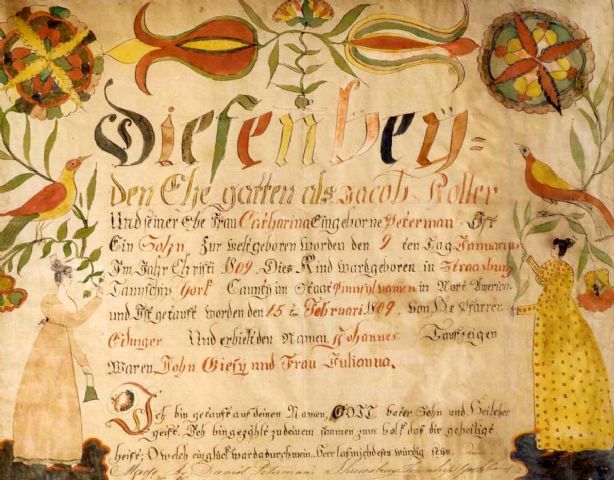 Diesen beÿ=
den Ehe gatten als Jacob Koller
Und seiner Ehe Frau Catharina Eingeborne Peterman Ist
Ein Sohn Zur welt geboren worden den 9 ten Tag Januarii
Im Jahr Christi 1809. Dies Kind ward geboren in Strasburg
Taunschip York Caunty im Staat Pennsylvanien in Nort America
und Ist getauft worden den 15 Februari 1809. von Hr Pfarrer
Edinger Und erhielt den Namen Johannes Taufzeigen
Waren John Giesy und Frau Julianna.
Ich bin getauft auf deinen Namen, GOTT vater Sohn und Heilger
geist. Ich bin gezählt zu deinem saamen zum Volk daß dir geheiligt
heist; O welch ein glück ward adurch mein. Herr laß mich dessen würdig sein.
Made By Daniel Peterman Shrewsbury Township York